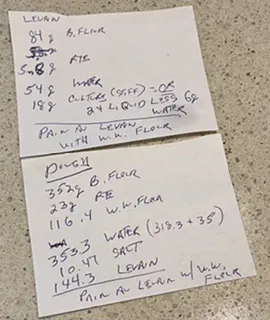 LEVAIN
84 g B.FLOUR
5.8 g RYE
54 g WATER
18 g CULTURE (STIFF) = OR
24 LIQUID LESS 6g WATER
PAIN AU LEVAIN
WITH W.W. FLOUR
DOUGH
352g B.FLOUR
23g RYE
116.4 W.W.FLOUR
353.3 WATER (318.3 + 35)
10.47 SALT
144.3 LEVAIN
PAIN AU LEVAIN W/ W.W.
FLOUR